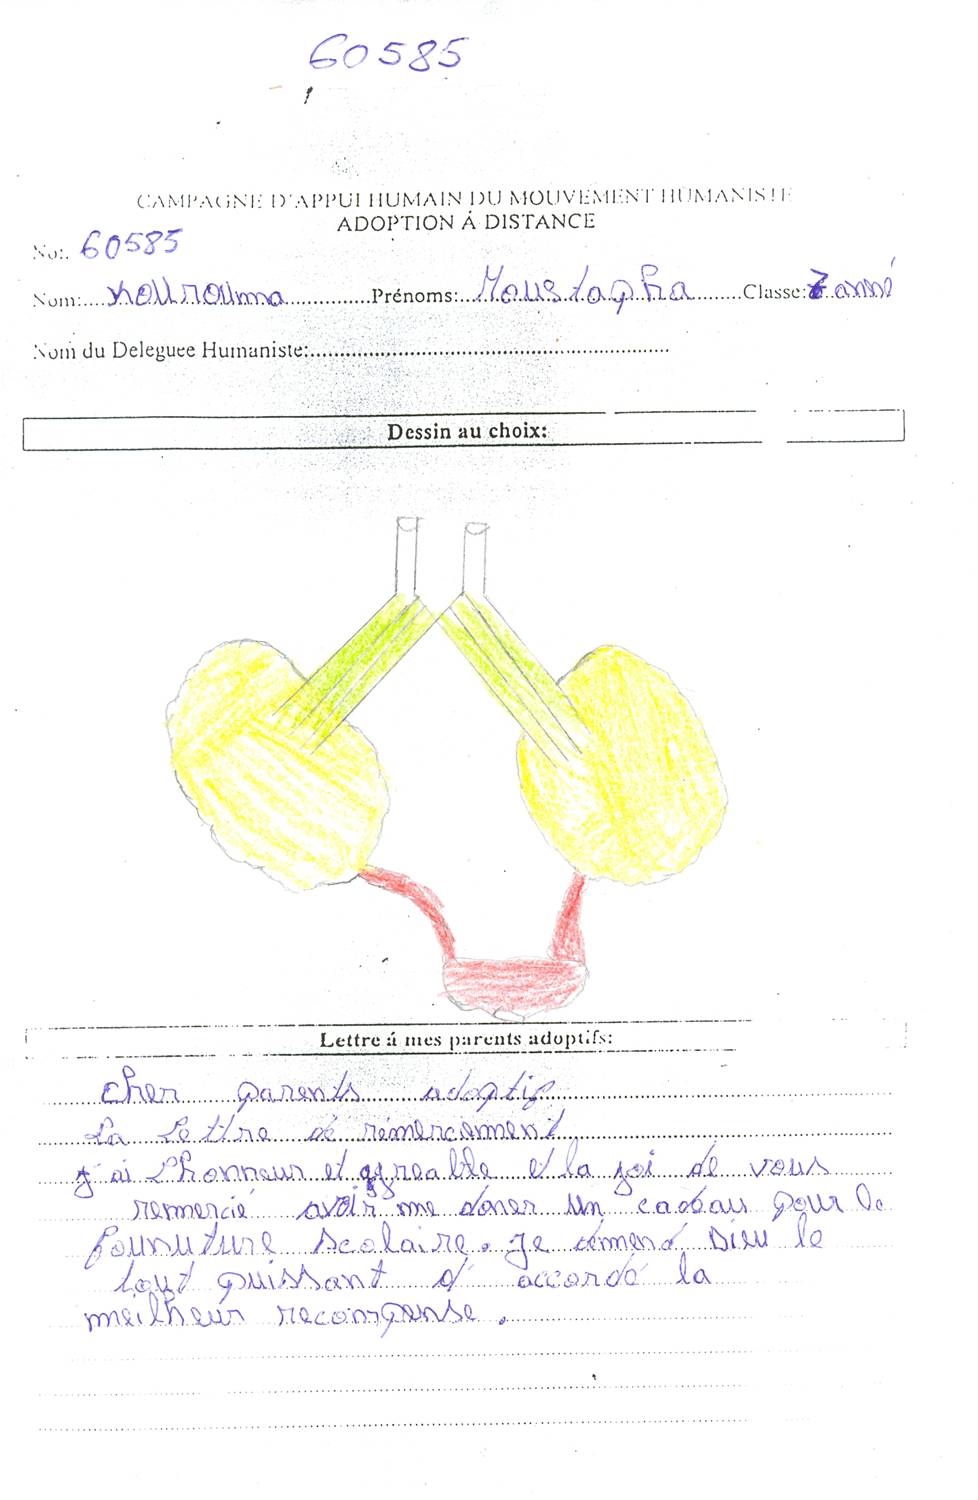 60585
CAMPAGNE D'APPUI HUMAIN DU MOUVEMENT HUMANISTE
ADOPTION Á DISTANCE
No:. 60585
Nom:....Kourouma...............Prénoms:..Moustapha........Classe:7 anné
Nom du Deleguee Humaniste:..................................................................
Dessin au choix:
Lettre á mes parents adoptifs:
cher parents adoptif
La Lettre de remercement
J'ai L'honneur et agreable et la joi de vous
remmercié avoir me doner un cadeau pour le
founuture scolaire. Je demend Dieu le
tout puissant d'accordé la
meilheur recompense.